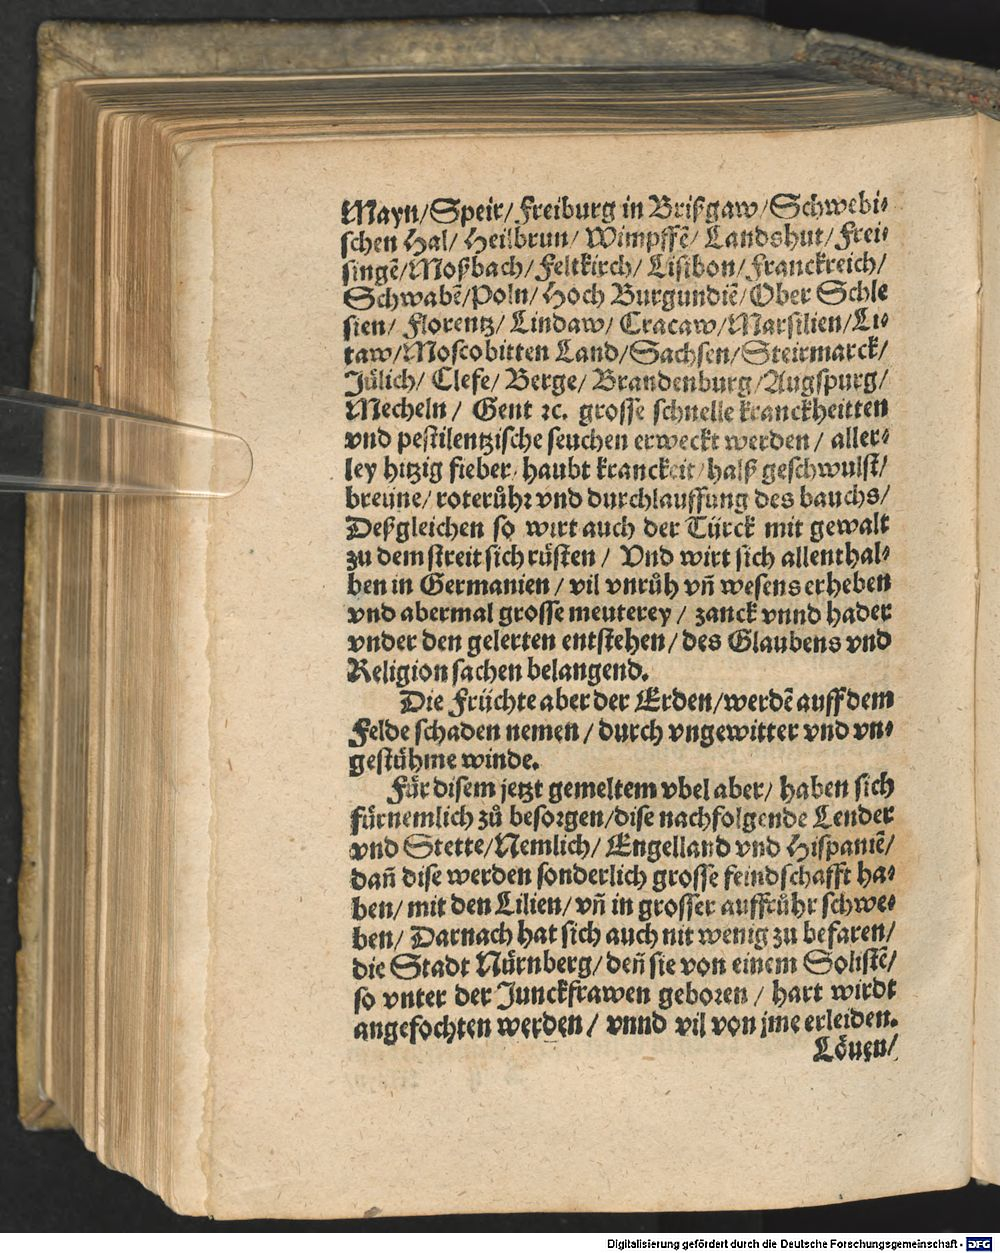 Mayn/Speir/Freiburg in Brißgaw/Schwebi⸗
schen Hal/ Heilbrun/ Wimpffẽ/ Landshut/Frei⸗
singẽ/Moßbach/Feltkirch/Lisibon/Franckreich/
Schwabẽ/Poln/Hoch Burgundiẽ/Ober Schle
sien/ Florentz/ Lindaw/ Cracaw/Marsilien/Li⸗
taw/Moscobitten Land/Sachsen/Steirmarck/
Jülich/ Clefe/ Berge/ Brandenburg/Augspurg/
Mecheln/ Gent ꝛc. grosse schnelle kranckheitten
vnd pestilentzische seuchen erweckt werden/ aller⸗
ley hitzig fieber/ haubt kranckeit/halß geschwulst/
breüne/ roterůhr vnd durchlauffung des bauchs/
Deßgleichen so wirt auch der Türck mit gewalt
zu dem streit sich rüsten/ Vnd wirt sich allenthal⸗
ben in Germanien/ vil vnrůh vñ wesens erheben
vnd abermal grosse meuterey/ zanck vnnd hader
vnder den gelerten entstehen/ des Glaubens vnd
Religion sachen belangend.
Die Früchte aber der Erden/werdẽ auff dem
Felde schaden nemen/ durch vngewitter vnd vn⸗
gestühme winde.
Für disem jetzt gemeltem vbel aber/ haben sich
fürnemlich zů besorgen/dise nachfolgende Lender
vnd Stette/Nemlich/ Engelland vnd Hispaniẽ/
dañ dise werden sonderlich grosse feindschafft ha⸗
ben/ mit den Lilien/ vñ in grosser auffrůhr schwe⸗
ben/ Darnach hat sich auch nit wenig zu befaren/
die Stadt Nürnberg/ deñ sie von einem Solistẽ/
so vnter der Junckfrawen geboren/ hart wirdt
angefochten werden/ vnnd vil von jme erleiden.
Löuen/
Digitalisierung gefördert durch die Deutsche Forschungsgemeinschaft - DFG